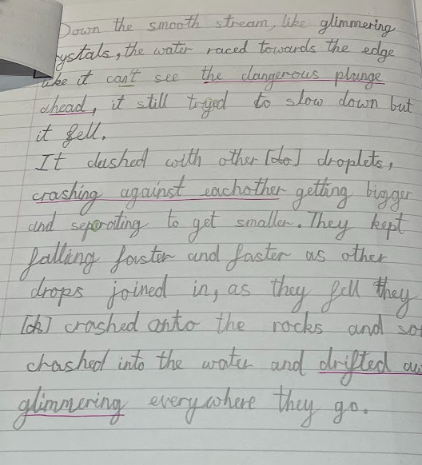 Down the smooth stream, like glimmering
ystals, the water raced towards the edge
like it can't see the dangerous plunge
ahead, it still tryed to slow down but
it fell.
It dashed with other [do] droplets,
crashing against eachother getting bigger
and seperating to get smaller. They kept
falling faster and faster as other
drops joined in, as they fell they
crashed onto the rocks and so
chashed into the water and drifted
glimmering everywhere they go.